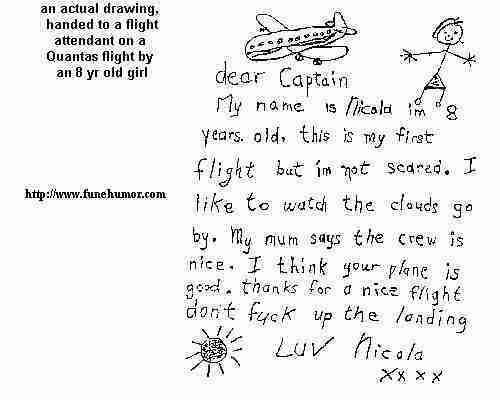 an actual drawing,
handed to a flight
attendant on a
Quantas flight by
an 8 yr old girl
http://www.funehumor.com
dear Captain
My name is Nicola im 8
years. old, this is my first
flight but im not scared. I
like to watch the clouds go
by. My mum says the crew is
nice. I think your plane is
good. thanks for a nice flight
don't fuck up the landing
LUV Nicola
xxxx